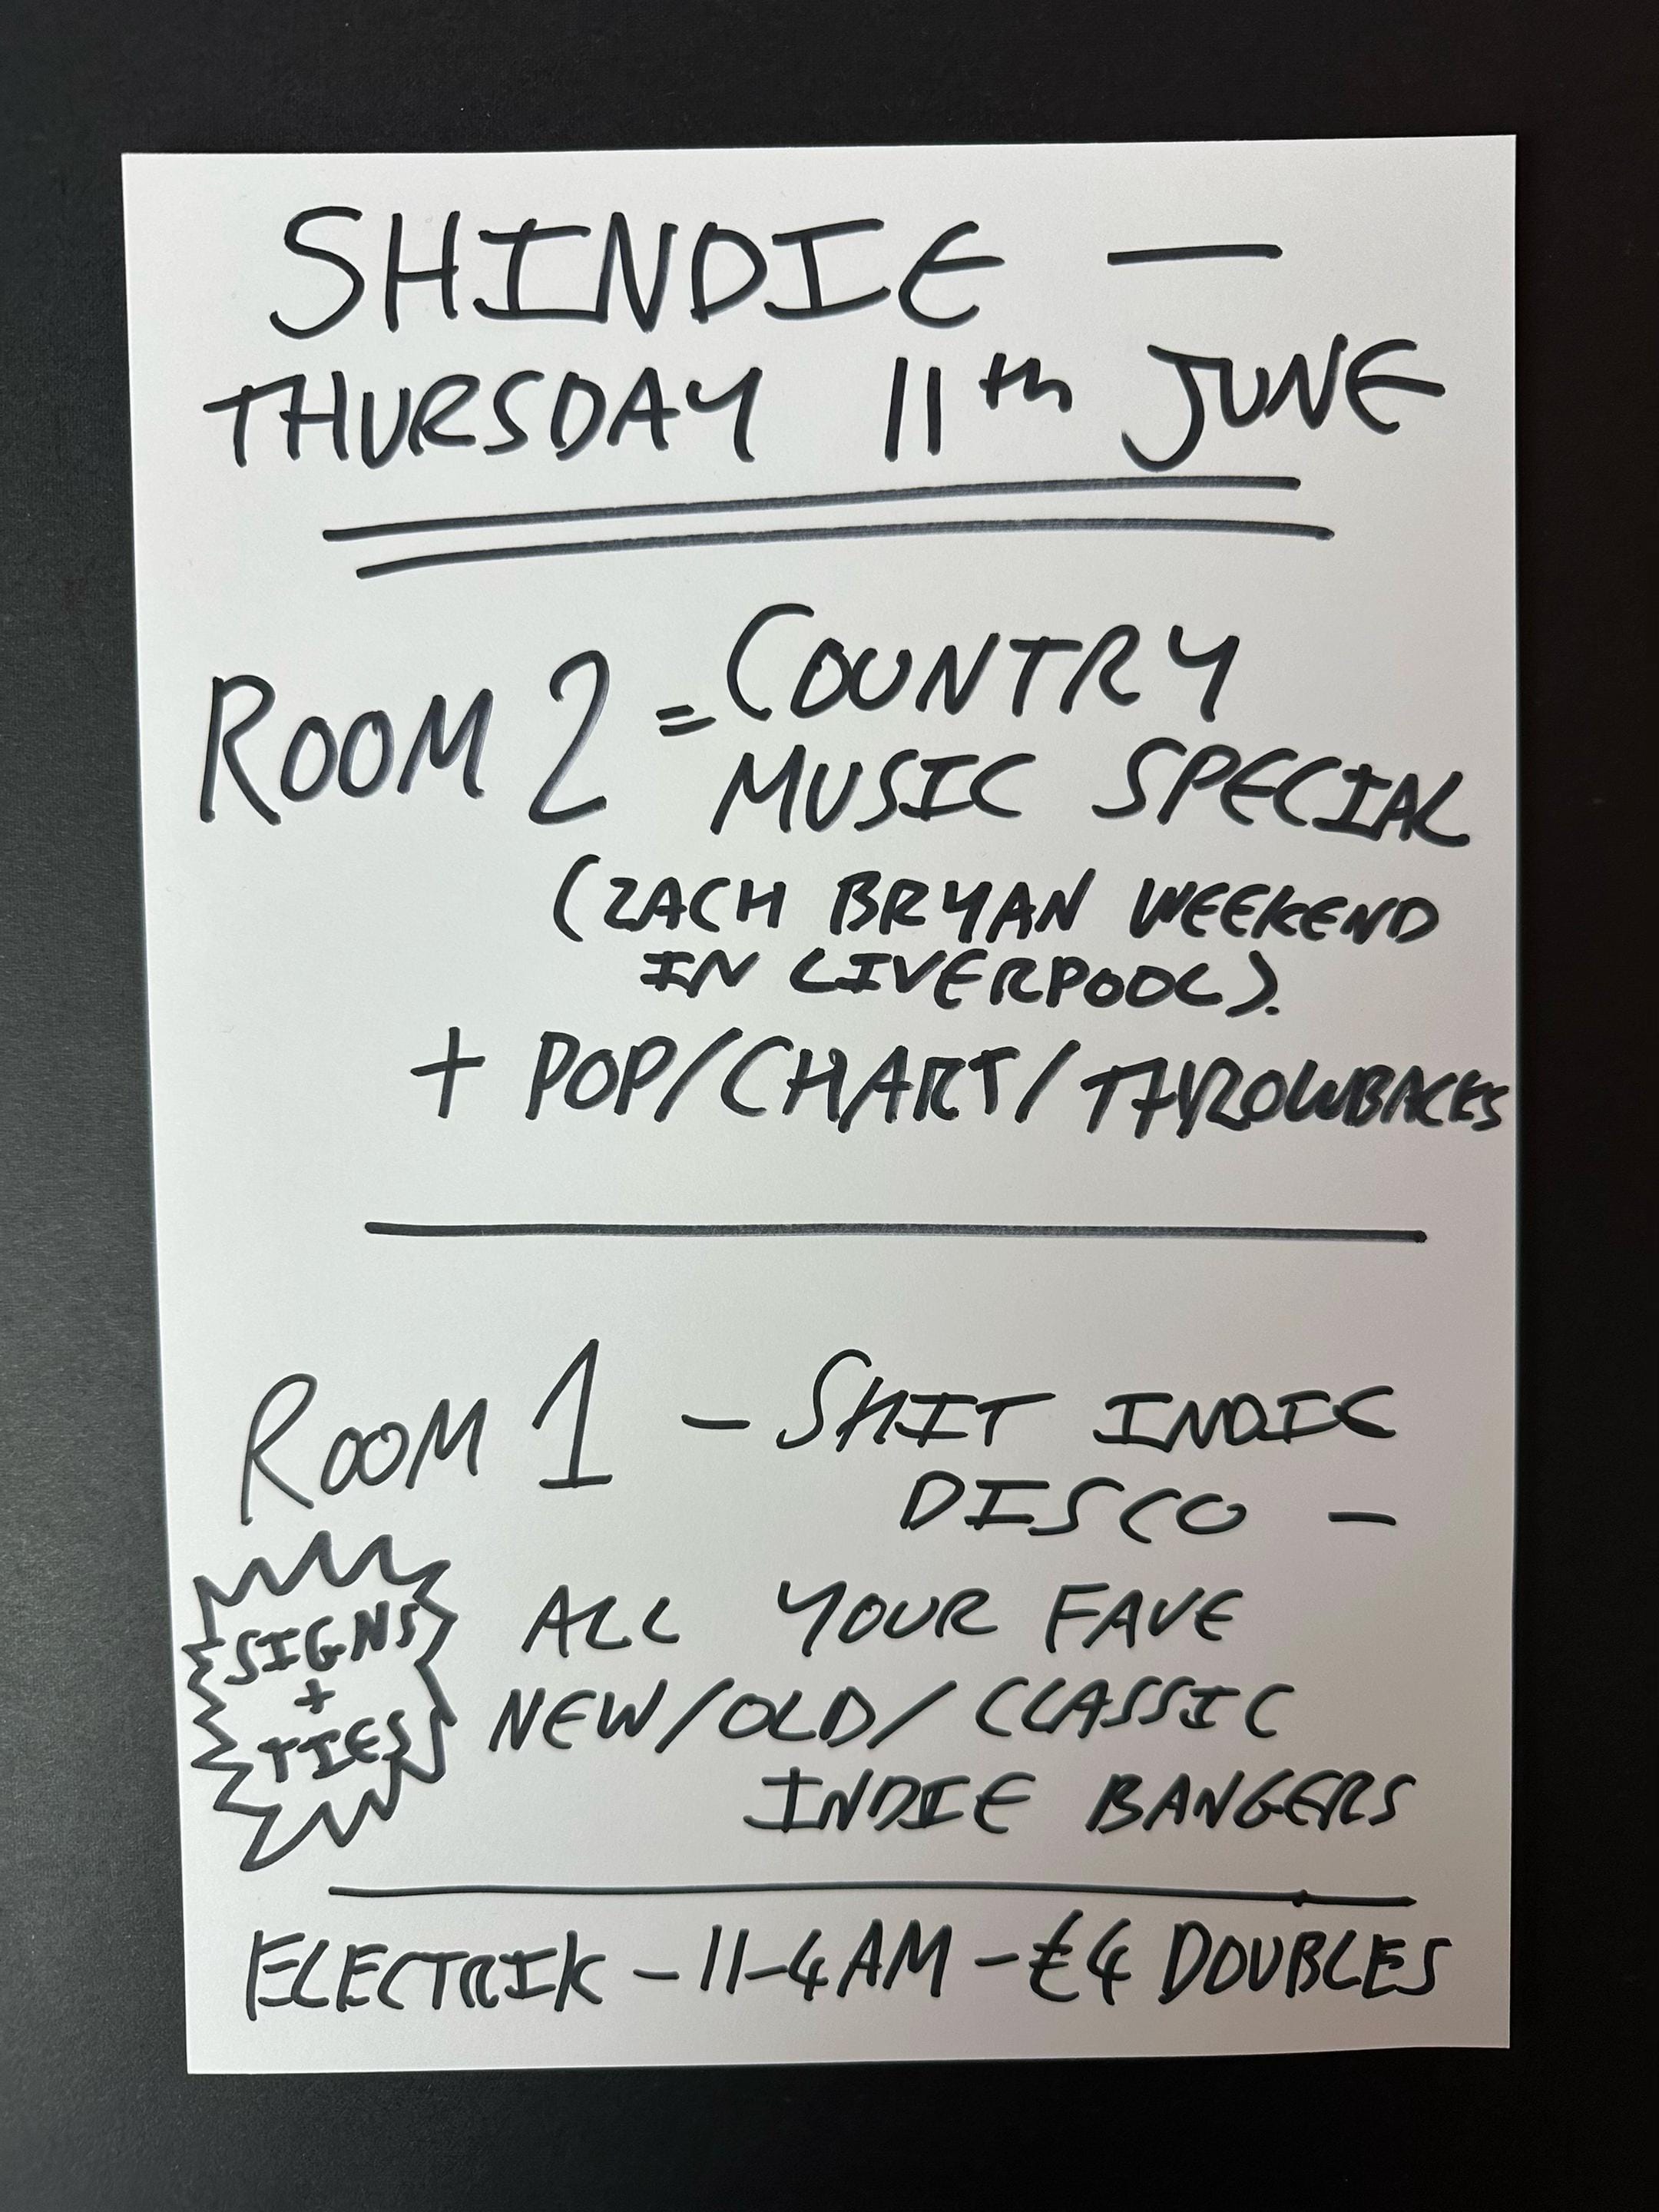 SHINDIE —
THURSDAY 11th JUNE
ROOM 2 = COUNTRY
MUSIC SPECIAL
(ZACH BRYAN WEEKEND
IN LIVERPOOL).
+ POP/CHART/THROWBACKS
ROOM 1 - SHIT INDIE
DISCO -
ALL YOUR FAVE
NEW/OLD/CLASSIC
INDIE BANGERS
SIGNS
+
TIES
ELECTRIK - 11-4AM - £4 DOUBLES